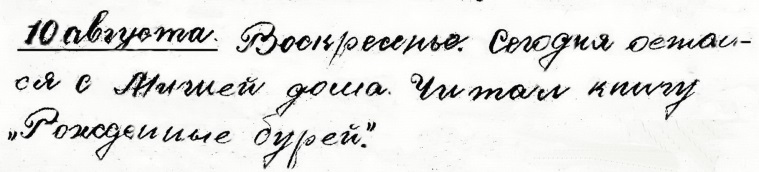 10 августа. Воскресенье. Сегодня остал-
ся с Мишей дома. Читал книгу
„Рожденные бурей".